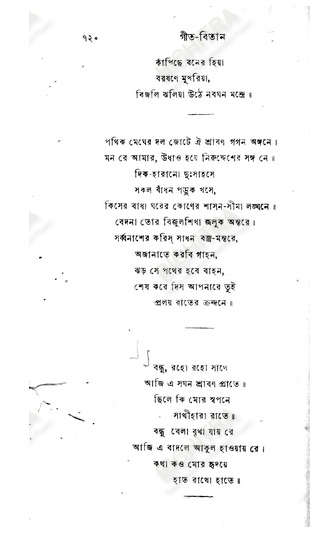 ৭২০
গীত-বিতান
কাঁপিছে বনের হিয়া
বরষণে মুখরিয়া,
বিজলি ঝলিয়া উঠে নবঘন মন্দ্রে॥
পথিক মেঘের দল জোটে ঐ শ্রাবণ গগন অঙ্গনে।
মন রে আমার, উধাও হয়ে নিরুদ্দেশের সঙ্গ নে॥
দিক-হারানো দুঃসাহসে
সকল বাঁধন পড়ুক খসে,
কিসের বাধা ঘরের কোণের শাসন-সীমা লঙ্ঘনে॥
বেদনা তোর বিজুলশিখা জ্বলুক অন্তরে।
সর্ব্বনাশের করিস্ সাধন বজ্র-মন্তরে,
অজানাতে করবি গাহন,
ঝড় সে পথের হবে বাহন,
শেষ করে দিস আপনারে তুই
প্রলয় রাতের ক্রন্দনে॥
বন্ধু, রহো রহো সাথে
আজি এ সঘন শ্রাবণ প্রাতে॥
ছিলে কি মোর স্বপনে
সাথীহারা রাতে॥
বন্ধু বেলা বৃথা যায় রে
আজি এ বাদলে আকুল হাওয়ায় রে।
কথা কও মোর হৃদয়ে
হাত রাখো হাতে॥